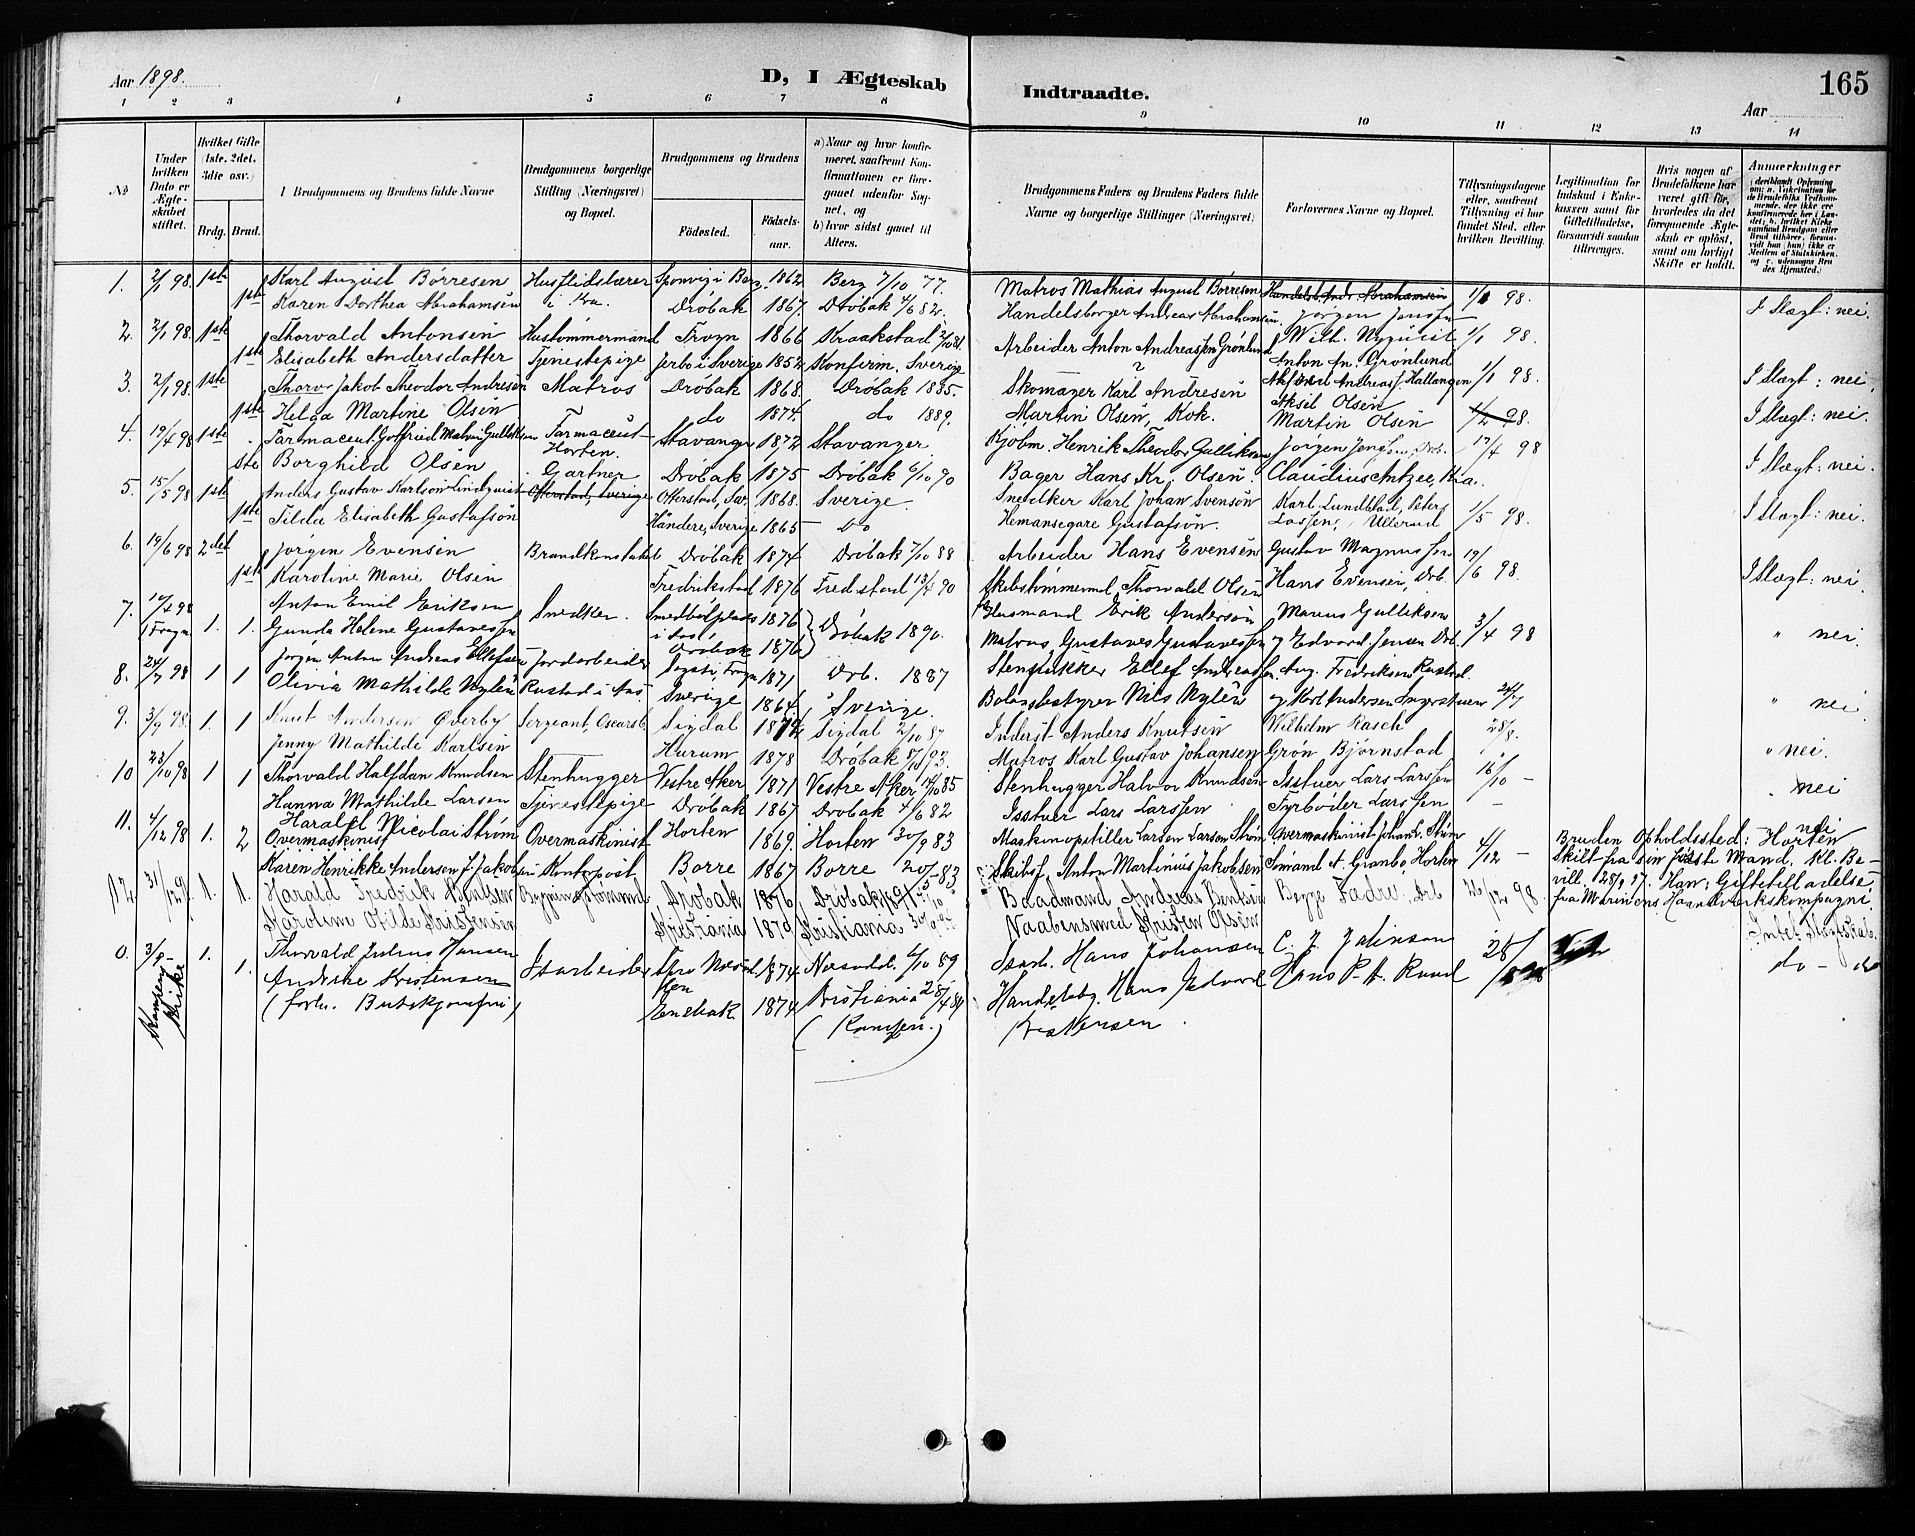 Aar 1898.
D, I Ægteskab
Indtraadte.
165
Aar
1 2 3 4 5 6 7 8 9 10 11 12 13 14
No
Under hvilken Dato er Ægteskabet stiftet.
Hvilket Gifte (1ste, 2det, 3die osv.)
Brdg. Brud.
Brudgommens og Brudens fulde Navne
Brudgommens borgerlige Stilling (Næringsvei) og Bopæl.
Brudgommens og Brudens
Fødested.
Fødselsaar.
a) Naar og hvor konfirmeret, saafremt Konfirmationen er foregaaet udenfor Sognet, og
b) hvor sidst gaaet til Alters.
Brudgommens Faders og Brudens Faders fulde Navne og borgerlige Stillinger (Næringsvei)
Forlovernes Navne og Bopæl.
Tillysningsdagene eller, saafremt Tillysning ei har fundet Sted, efter hvilken Bevilling.
Legitimation for Indskud i Enkekassen samt for Giftetilladelse, forsaavidt saadan tiltrænges.
Hvis nogen af Brudefolkene har været gift før, hvorledes da det foregaaende Ægteskab er opløst, samt om lovligt Skifte er holdt.
Anmærkninger
1. 2/1 98. 1ste Karl August Børresen Husflidslærer Sponvig i Berg 1862 Berg 7/10 77. Matros Mathias August Børresen Handelsb. Andr. Abrahamsen 1/1 98. I Slægt: nei.
1ste Karen Dorthea Abrahamsen i Kra. Drøbak 1867. Drøbak 4/6 82. Handelsborger Andreas Abrahamsen. Jørgen Jensen
2. 2/1 98. 1ste Thorvald Antonsen Hustømmermand Frogn 1866 Kraakstad 2/10 81 Arbeider Anton Andreassen Grønlund Wilh. Nyquist 1/1 98.
1ste Elisabeth Andersdatter Tjenestepige Jerbo i Sverige 1852 Konfirm. Sverige ? Anton An. Grønlund I Slægt: nei.
3. 2/1 98. 1ste Jakob Theodor Andresen Matros Drøbak 1868. Drøbak 1885. Skomager Karl Andresen Andreas J. Hallangen 1/1 98.
1ste Helga Martine Olsen do 1874. do 1889. Martin Olsen, Kok. Aksil Olsen Martin Olsen 1/2 98. I Slægt: nei.
4. 19/4 98 1ste Farmaceut Gotfried Malvin Gulliksen Farmaceut Horten. Stavanger 1872 Stavanger. Kjøbm. Henrik Theodor Gulliksen Jørgen Jensen, Drb. 17/4 98
1ste Borghild Olsen Drøbak 1875 Drøbak 6/10 90 Bager Hans Kr. Olsen. Claudius Antzee, Kra. I Slægt: nei.
5. 15/5 98 1ste Anders Gustav Karlson Lindquist Gartner Otterstad, Sverige Otterstad, Sv. 1868. Sverige. Snedker Karl Johan Svensøn Karl Lundblad, Peter Larssen, Ullerud 1/5 98. I Slægt: nei.
1ste Tilda Elisabeth Gustafsøn Händere, Sverige 1865 Do Hemansegare Gustafsøn.
6. 19/6 98 2det Jørgen Evensen Brandkonstabel Drøbak 1874 Drøbak 7/10 88 Arbeider Hans Evensen Gustav Magnussen 19/6 98.
1ste Karoline Marie Olsen Fredrikstad 1876 Fredstad 13/4 90 Skibstømmermd Thorvald Olsen Hans Evensen, Drb. I Slægt: nei.
7. Frogn 1. 1. Anton Emil Eriksen Snedker. 1876 Drøbak 1890. Husmand Erik Andersøn Marius Gulliksen 3/4 98
Gunda Helene Gustavessen i Aas, Drøbak 1876 Matros Gustaves Gustavessen og Edvard Jensen Drb. " nei.
8. 24/7 98 1 1 Jørgen Anton Andreas Ellefsen Jordarbeider Frogn 1871 Drb. 1887 Stenpukker Ellef Andreassen Aug. Fredriksen Rustad.
Olivia Mathilde Nylén Rustad i Aas Sverige 1864. Sverige. Bolagsbestyrer Nils Nylén og Karl Andersen 24/7 " nei.
9. 3/9 98. 1. 1 Knut Andersen Øverby Sergeant, Oscarsb. Sigdal 1872 Sigdal 2/10 87 Inderst Anders Knutsen Wilhelm Rasch 28/8.
Jenny Mathilde Karlsen Hurum 1878 Drøbak 8/10 93. Matros Karl Gustav Johansen Grøn Bjørnstad " nei.
10 23/10 98 1 1 Thorvald Halfdan Knudsen Stenhugger Vestre Aker 1871 Vestre Aker 14/10 85 Stenhugger Halvor Knudsen Isstuer Lars Larssen 16/10 –
Hanna Mathilde Larsen Tjenestepige Drøbak 1867 Drøbak 4/6 82 Isstuer Lars Larssen Fyrbøder Larssen – " nei
11. 4/12 98 1. 2 Harald Nicolai Strøm Overmaskinist Overmaskinist Horten 1869. Horten 30/9 83 Maskinopstiller Larsen Larsen Strøm Overmaskinist Johan L. Strøm 4/12 – nei
Karen Henrikke Andersen f. Jakobsen i Kontorpost Borre 1867 Borre 20/5 83 Skibsf. Anton Martinius Jakobsen Smand A. Granbo, Horten
Bruden Opholdssted: Horten
Skilt fra sin første Mand. Kl. Bevill. 28/9 97. Han: Giftetilladelse fra Marinens Haandverkskompagni.
12 31/12 98. 1. 1. Harald Fredrik Bentsen Drøbak 1876 Drøbak Baadmand Andreas Bentsen Begge Fædre, Drb 26/12 98.
Karoline Hilde Kristensen Kristiania 1879 Kristiania Vaabensmed Kristen Olsen Intet Slægtskab.
0. 3/8 – 1. Thorvald Julius Hansen Isarbeider 1874 Nesodd. 6/10 89 Isarb. Hans Johansen C. J. Johnson 28/ 898 do – do
Kampens Kirke 1. Andrine Kristensen Enebak 1874 Kristiania 28/4 89 Handelsbg. Hans Edvard Hans P. A. Ruud
(forh. Butikjomfru) (Kampen.) Kristensen